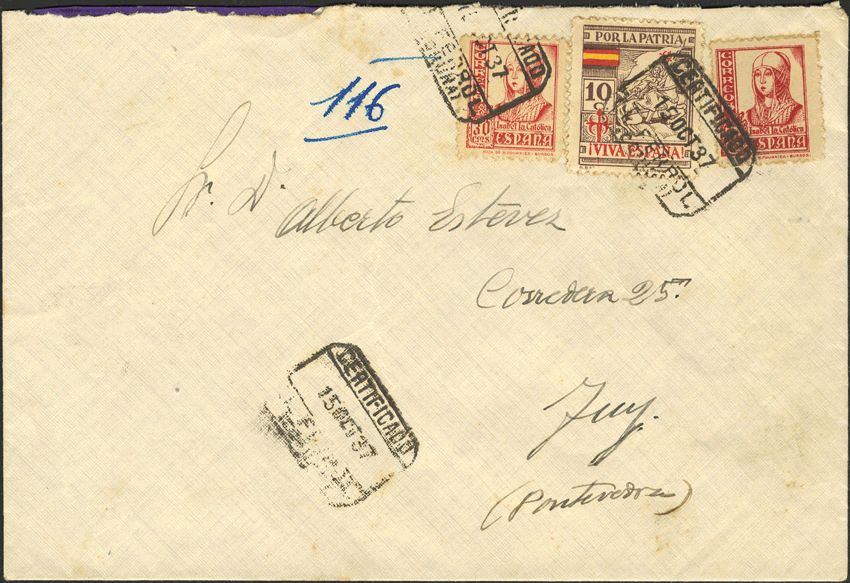 116
CERTIFICADO
12 OCT 37
EL FERROL
30
CTS
CORREOS
Isabel la Católica
ESPAÑA
POR LA PATRIA
10
C
¡VIVA ESPAÑA!
CERTIFICADO
12 OCT 37
EL FERROL
CORREOS
Isabel la Católica
ESPAÑA
Sr. D.
Alberto Estévez
Corredera 25.
Tuy.
(Pontevedra)
CERTIFICADO
15 OCT 37